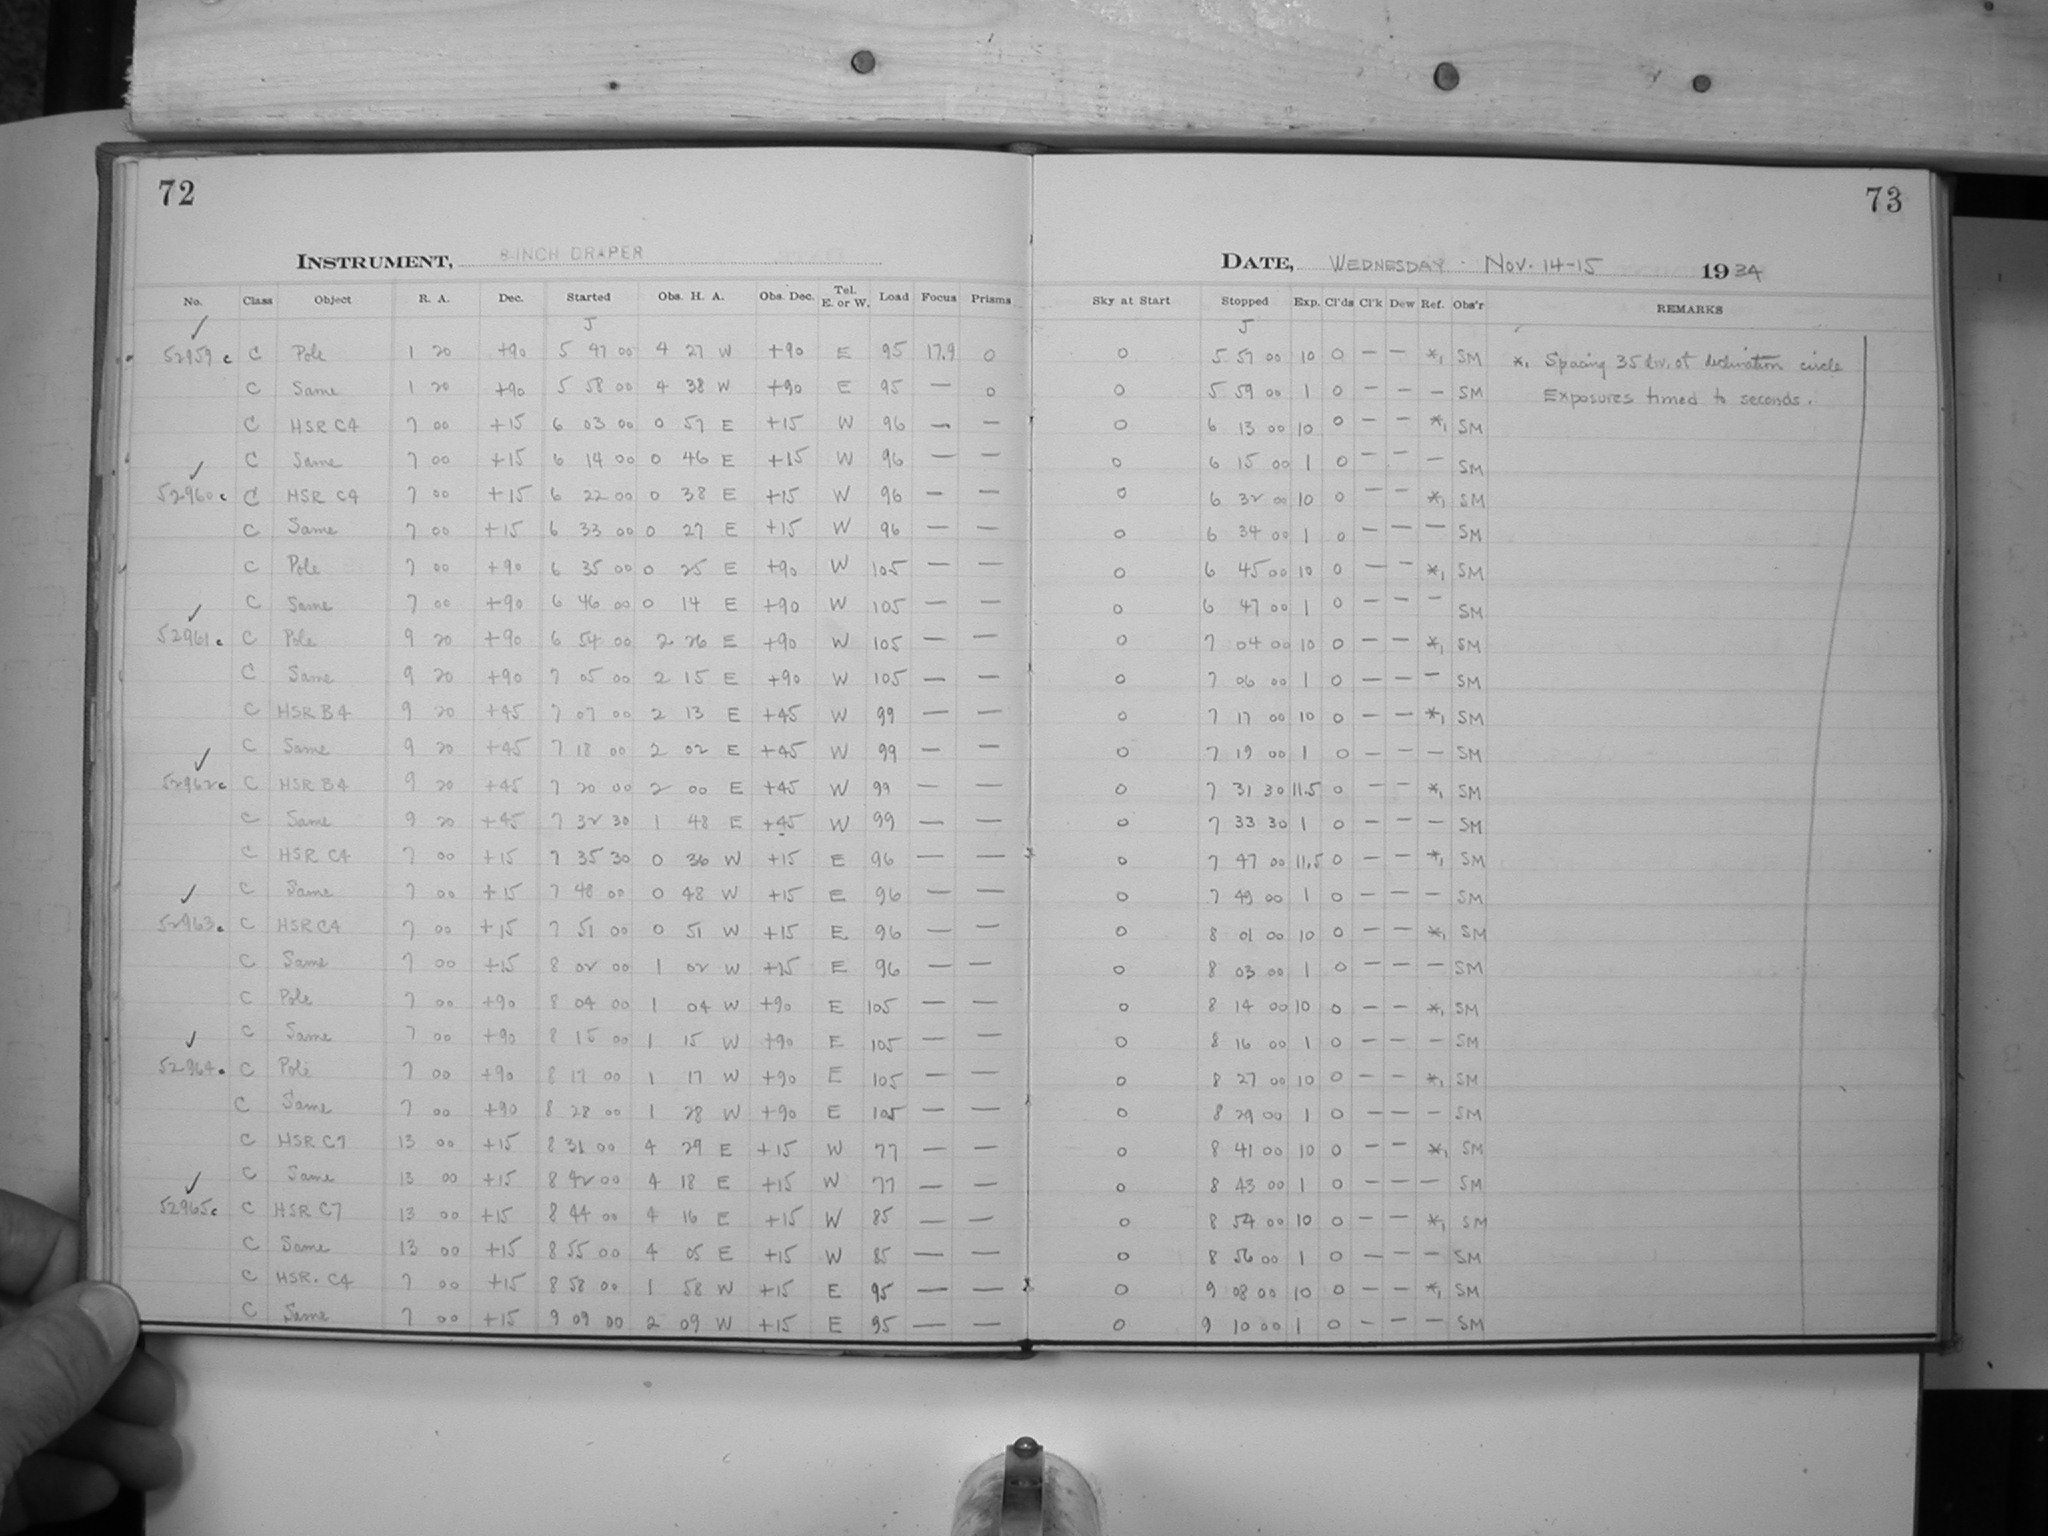 72
73
INSTRUMENT, 8-INCH DRAPER
DATE, WEDNESDAY. Nov. 14-15 1934
No. Class Object R. A. Dec. Started Obs. H. A. Obs. Dec. Tel. E. or W. Load Focus Prisms Sky at Start Stopped Exp. Cl'ds Cl'k Dew Ref. Obs'r REMARKS
J J
52959 c C Pole 1 20 +90 5 47 00 4 27 W +90 E 95 17.9 0 0 5 57 00 10 0 — — *1 SM *1 Spacing 35 div. of declination circle
C Same 1 20 +90 5 58 00 4 38 W +90 E 95 — 0 0 5 59 00 1 0 — — — SM Exposures timed to seconds.
C HSR C4 7 00 +15 6 03 00 0 57 E +15 W 96 — — 0 6 13 00 10 0 — — *1 SM
C Same 7 00 +15 6 14 00 0 46 E +15 W 96 — — 0 6 15 00 1 0 — — — SM
52960 c C HSR C4 7 00 +15 6 22 00 0 38 E +15 W 96 — — 0 6 32 00 10 0 — — *1 SM
C Same 7 00 +15 6 33 00 0 27 E +15 W 96 — — 0 6 34 00 1 0 — — — SM
C Pole 7 00 +90 6 35 00 0 25 E +90 W 105 — — 0 6 45 00 10 0 — — *1 SM
C Same 7 00 +90 6 46 00 0 14 E +90 W 105 — — 0 6 47 00 1 0 — — — SM
52961 c C Pole 9 20 +90 6 54 00 2 26 E +90 W 105 — — 0 7 04 00 10 0 — — *1 SM
C Same 9 20 +90 7 05 00 2 15 E +90 W 105 — — 0 7 06 00 1 0 — — — SM
C HSR B4 9 20 +45 7 07 00 2 13 E +45 W 99 — — 0 7 17 00 10 0 — — *1 SM
C Same 9 20 +45 7 18 00 2 02 E +45 W 99 — — 0 7 19 00 1 0 — — — SM
52962 c C HSR B4 9 20 +45 7 20 00 2 00 E +45 W 99 — — 0 7 31 30 11.5 0 — — *1 SM
C Same 9 20 +45 7 32 30 1 48 E +45 W 99 — — 0 7 33 30 1 0 — — — SM
C HSR C4 7 00 +15 7 35 30 0 36 W +15 E 96 — — 0 7 47 00 11.5 0 — — *1 SM
C Same 7 00 +15 7 48 00 0 48 W +15 E 96 — — 0 7 49 00 1 0 — — — SM
52963 c C HSR C4 7 00 +15 7 51 00 0 51 W +15 E 96 — — 0 8 01 00 10 0 — — *1 SM
C Same 7 00 +15 8 02 00 1 02 W +15 E 96 — — 0 8 03 00 1 0 — — — SM
C Pole 7 00 +90 8 04 00 1 04 W +90 E 105 — — 0 8 14 00 10 0 — — *1 SM
C Same 7 00 +90 8 15 00 1 15 W +90 E 105 — — 0 8 16 00 1 0 — — — SM
52964 c C Pole 7 00 +90 8 17 00 1 17 W +90 E 105 — — 0 8 27 00 10 0 — — *1 SM
C Same 7 00 +90 8 28 00 1 28 W +90 E 105 — — 0 8 29 00 1 0 — — — SM
C HSR C7 13 00 +15 8 31 00 4 29 E +15 W 77 — — 0 8 41 00 10 0 — — *1 SM
C Same 13 00 +15 8 42 00 4 18 E +15 W 77 — — 0 8 43 00 1 0 — — — SM
52965 c C HSR C7 13 00 +15 8 44 00 4 16 E +15 W 85 — — 0 8 54 00 10 0 — — *1 SM
C Same 13 00 +15 8 55 00 4 05 E +15 W 85 — — 0 8 56 00 1 0 — — — SM
C HSR. C4 7 00 +15 8 58 00 1 58 W +15 E 95 — — 0 9 08 00 10 0 — — *1 SM
C Same 7 00 +15 9 09 00 2 09 W +15 E 95 — — 0 9 10 00 1 0 — — — SM